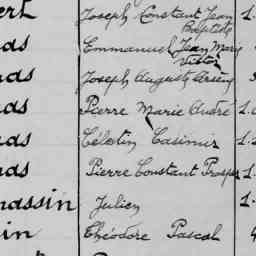 Joseph Constant Jean
Baptiste
Emmanuel Jean Marie
Victor
Joseph Auguste Arsène
Pierre Marie André
Célestin Casimir
Pierre Constant Prosper
Julien
Théodore Pascal